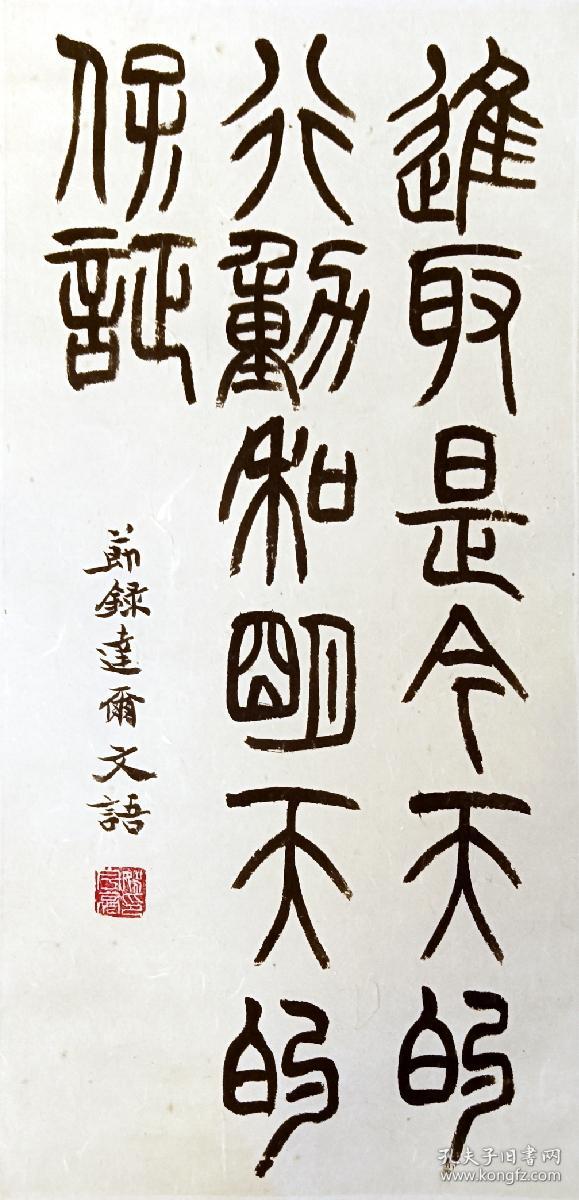 進取是今天的
行動和朙天的
保証
節錄達爾文語
孔夫子旧书网
www.kongfz.com